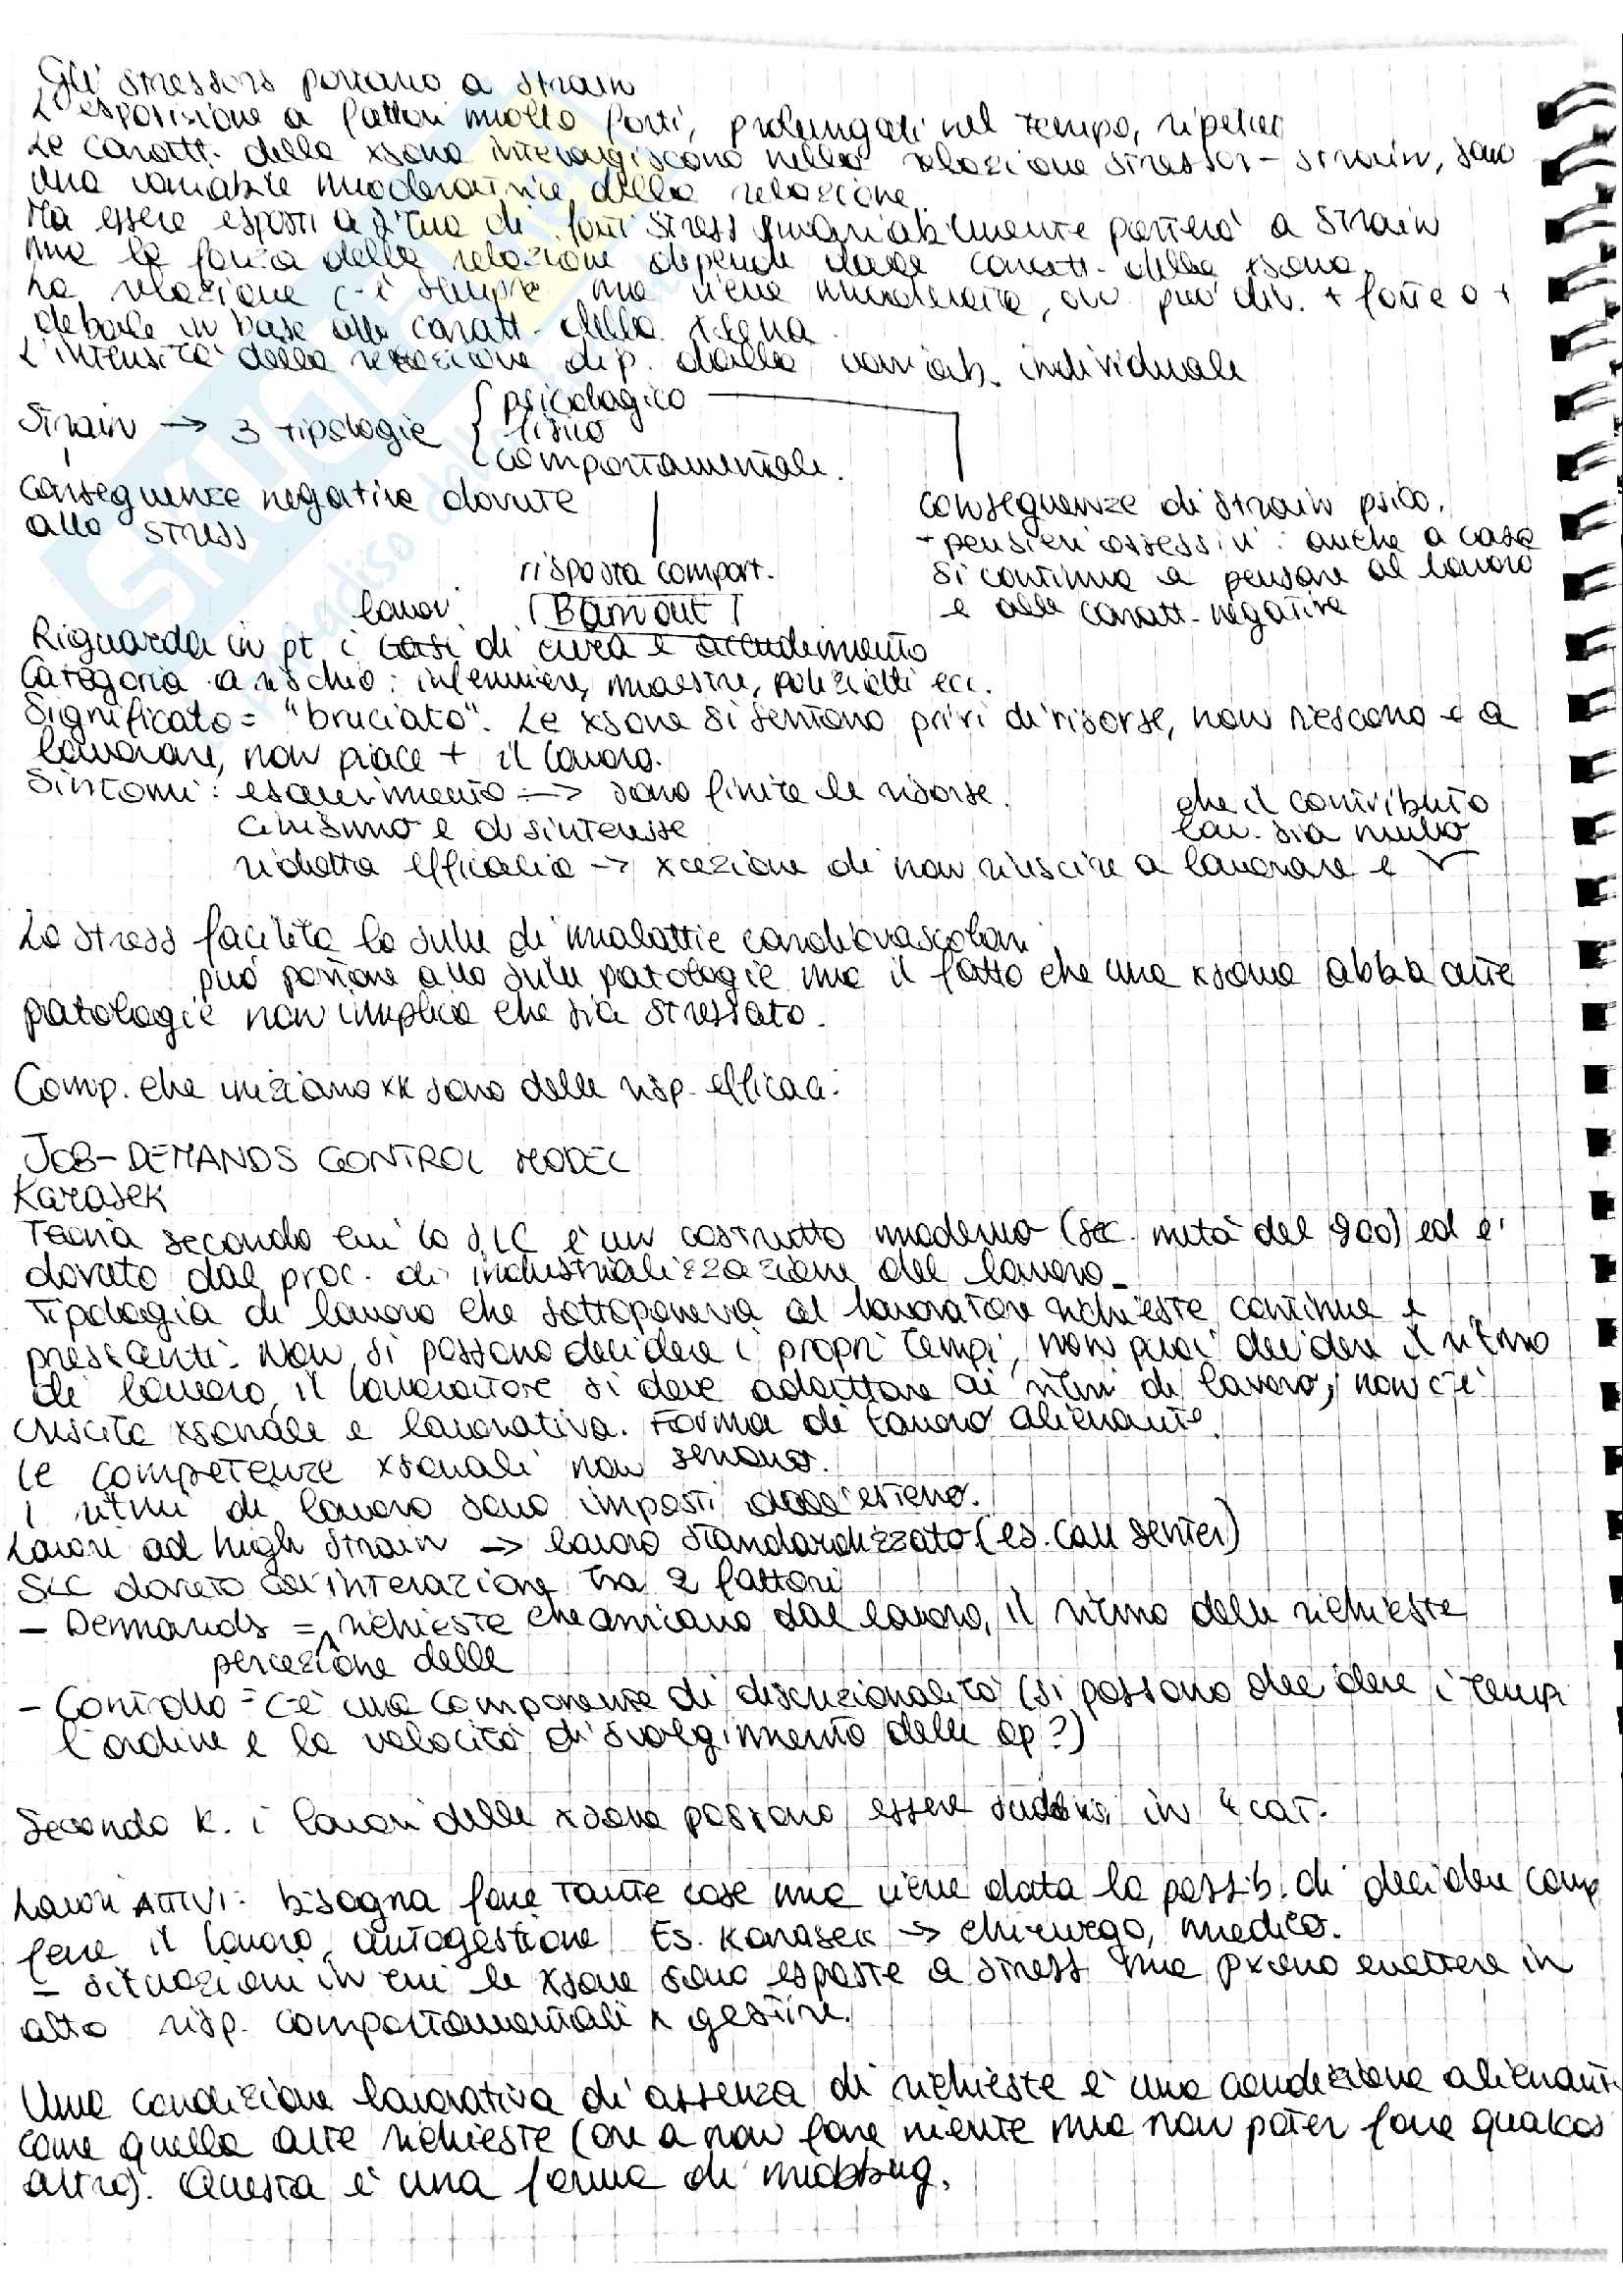 Gli stressors portano a strain
L'esposizione a fattori molto forti, prolungati nel tempo, ripetuti
Le caratt. della xsona interagiscono nella relazione stressor-strain, sono
una variabile moderatrice della relazione.
Ma essere esposti a di forti stress invariabilmente porterà a strain
ma la forza della relazione dipende dalle caratt. della xsona.
La relazione c'è sempre ma viene moderata, può div. + forte o +
debole in base alle caratt. della xsona.
L'intensità della relazione dip. dalla variab. individuale
Strain → 3 tipologie { psicologico
fisico
comportamentale.
conseguenze negative dovute
allo stress
conseguenze di strain psico.
- pensieri ossessivi: anche a casa
si continua a pensare al lavoro
e alle caratt. negative
risposta comport.
Burnout
lavori
Riguarda in pt i casi di cura e accudimento
Categoria a rischio: infermiere, maestre, poliziotti ecc.
Significato = "bruciato". Le xsone si sentono privi di risorse, non riescono + a
lavorare, non piace + il lavoro.
Sintomi: esaurimento → sono finite le risorse.
cinismo e disinteresse
ridotta efficacia → xcezione di non riuscire a lavorare e
che il contributo
lav. sia nullo
Lo stress facilita lo svilu di malattie cardiovascolari
può portare allo svilu patologie ma il fatto che una xsona abba
patologie non implica che sia stressato.
Comp. che iniziano xk sono delle risp. efficaci.
JOB-DEMANDS CONTROL MODEL
Karasek
Teoria secondo cui lo SLC è un costrutto moderno (sec. metà del 900) ed è
dovuto dal proc. di industrializzazione del lavoro.
Tipologia di lavoro che sottoponeva al lavoratore richieste continue e
pressanti. Non si possono decidere i propri tempi, non puoi decidere il ritmo
di lavoro, il lavoratore si deve adattare ai ritmi di lavoro, non c'è
crescita xsonale e lavorativa. Forma di lavoro alienante.
Le competenze xsonali non servono.
I ritmi di lavoro sono imposti dall'esterno.
Lavori ad high strain → lavoro standardizzato (es. call senter)
SLC dovuto all'interazione tra 2 fattori
- Demands = richieste che arrivano dal lavoro, il ritmo delle richieste
percezione delle
- Controllo = c'è una componente di discrezionalità (si possono decidere i tempi
l'ordine e la velocità di svolgimento delle op?)
Secondo K. i lavori delle xsone possono essere in 4 cat.
Lavori ATTIVI: bisogna fare tante cose ma viene data la possib. di decidere come
fare il lavoro, autogestione Es. Karasek → chirurgo, medico.
- situazioni in cui le xsone sono esposte a stress ma pxono mettere in
atto risp. comportamentali x gestire.
Una condizione lavorativa di assenza di richieste è una condizione alienante
come quella alte richieste (ore a non fare niente ma non poter fare qualcos
altro). Questa è una forma di mobbing.